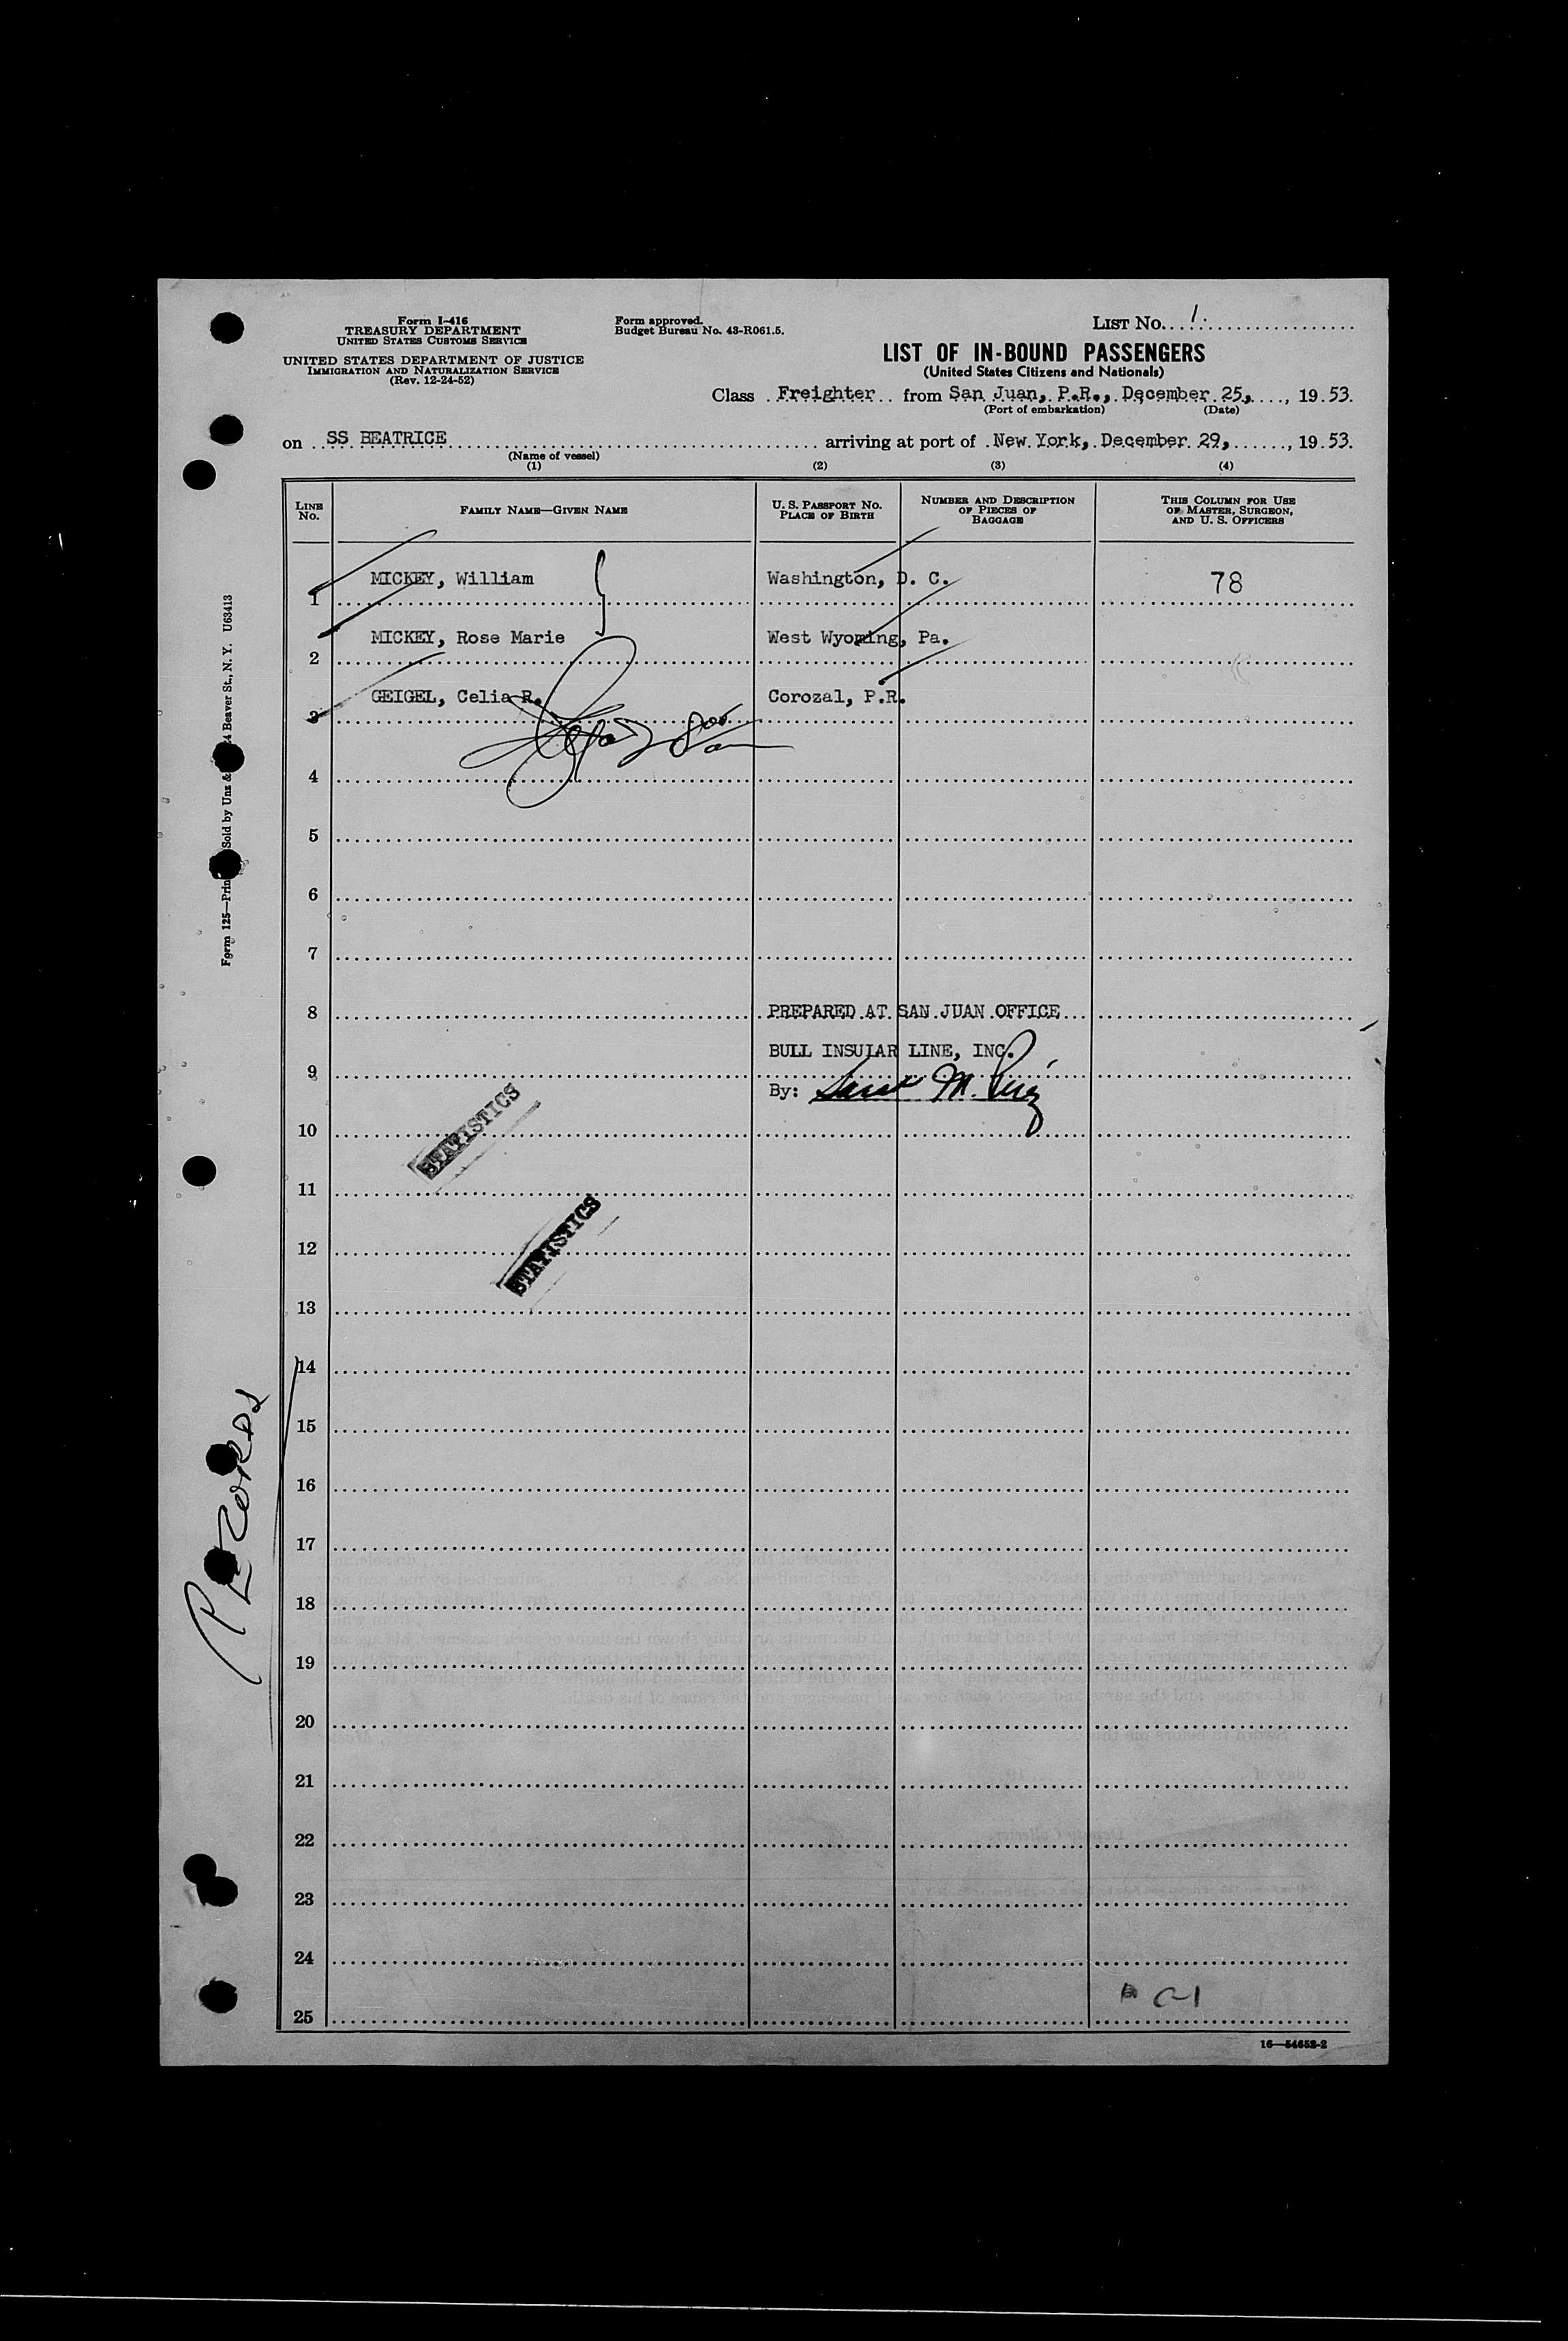 Form I-416
TREASURY DEPARTMENT
UNITED STATES CUSTOMS SERVICE
UNITED STATES DEPARTMENT OF JUSTICE
IMMIGRATION AND NATURALIZATION SERVICE
(Rev. 12-24-52)
Form approved.
Budget Bureau No. 43-R061.5.
LIST No. 1.
LIST OF IN-BOUND PASSENGERS
(United States Citizens and Nationals)
Class Freighter from San Juan, P.R., December 25, 1953.
(Port of embarkation) (Date)
on SS BEATRICE arriving at port of New York, December 29, 1953.
(Name of vessel)
(1) (2) (3) (4)
LINE No. FAMILY NAME—GIVEN NAME U. S. PASSPORT NO. PLACE OF BIRTH NUMBER AND DESCRIPTION OF PIECES OF BAGGAGE THIS COLUMN FOR USE OF MASTER, SURGEON, AND U. S. OFFICERS
1 MICKEY, William Washington, D. C. 78
2 MICKEY, Rose Marie West Wyoming, Pa.
3 GEIGEL, Celia R. Corozal, P.R.
4
5
6
7
8 PREPARED AT SAN JUAN OFFICE
BULL INSULAR LINE, INC.
9
By: M.
10
STATISTICS
11
STATISTICS
12
13
14
15
16
17
18
19
20
21
22
23
24
25
16—54652-2
Form 125—Prin Sold by Unz & 24 Beaver St., N. Y. U63413